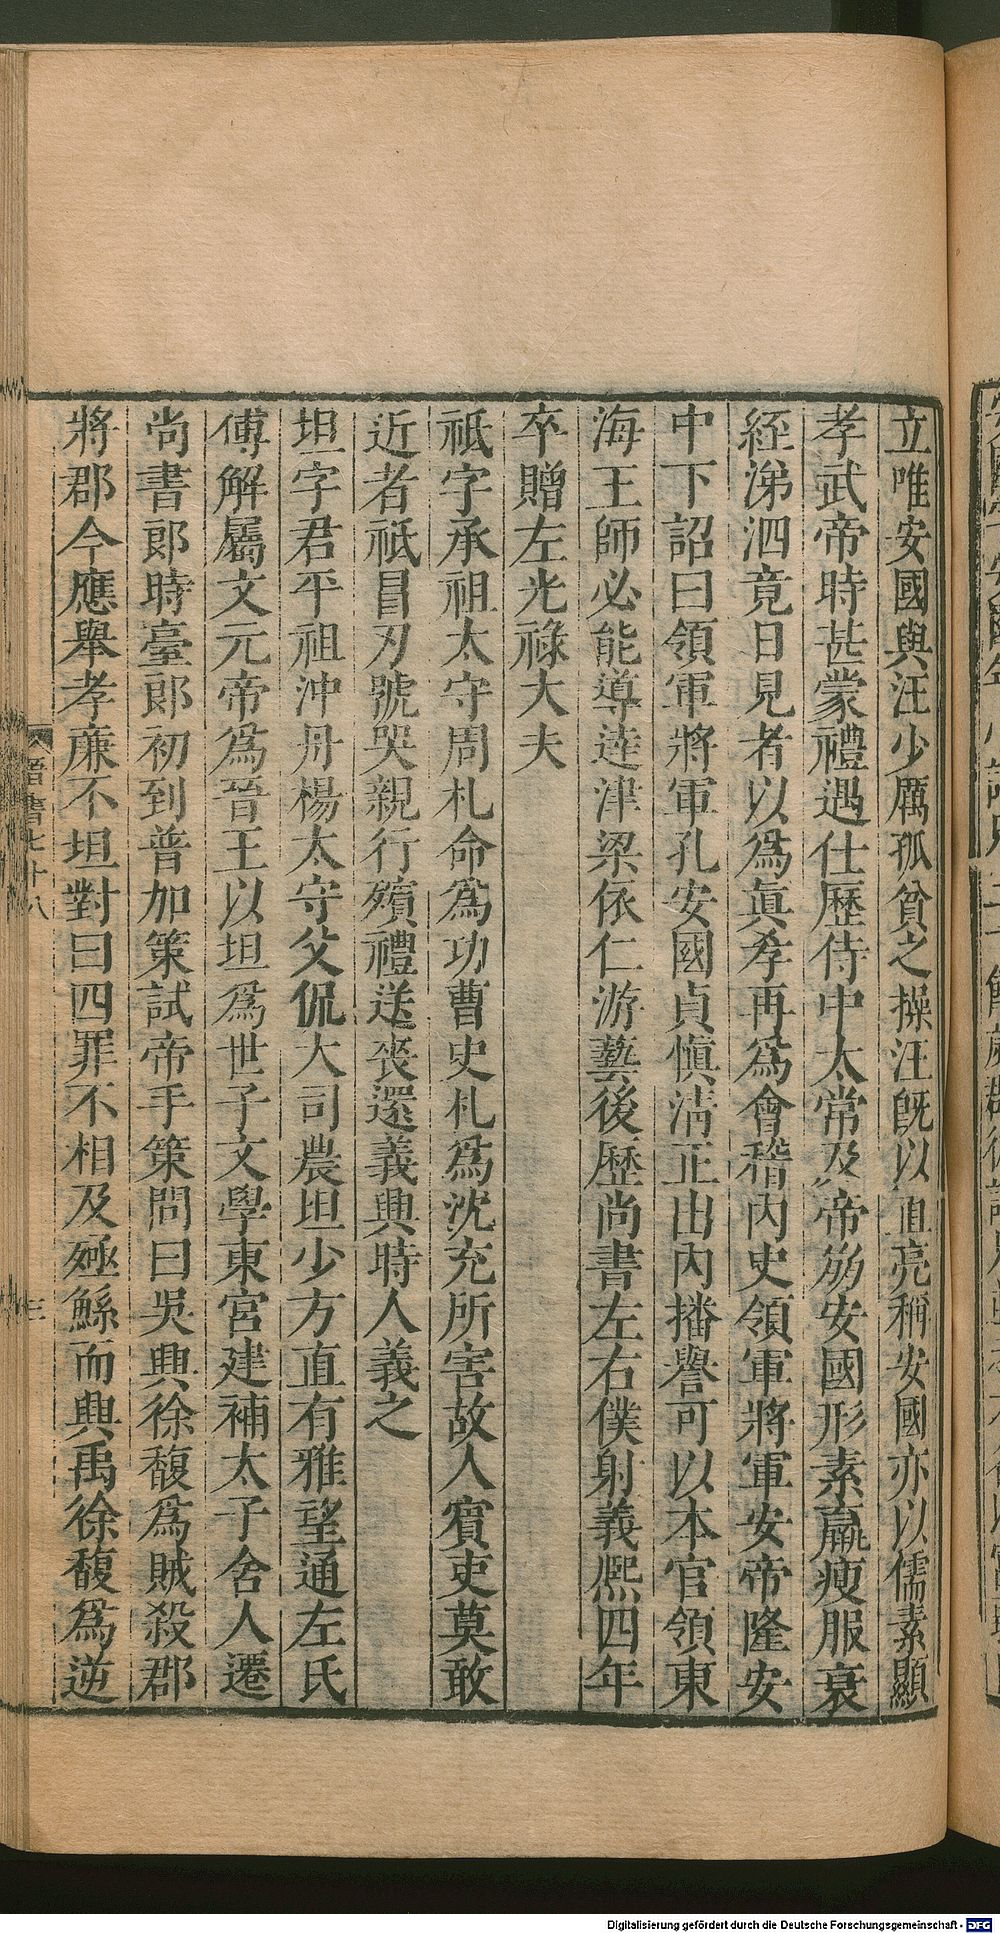 立唯安國與汪少厲孤貧之操汪旣以直亮稱安國亦以儒素顯
孝武帝時甚蒙禮遇仕歷侍中太常及帝崩安國形素羸瘦服衰
絰涕泗竟日見者以爲眞孝再爲會稽內史領軍將軍安帝隆安
中下詔曰領軍將軍孔安國貞愼淸正出內播譽可以本官領東
海王師必能導達津梁依仁游藝後歷尚書左右僕射義熙四年
卒贈左光祿大夫
祇字承祖太守周札命爲功曹史札爲沈充所害故人賓吏莫敢
近者祇冒刃號哭親行殯禮送喪還義興時人義之
坦字君平祖沖丹楊太守父侃大司農坦少方直有雅望通左氏
傅解屬文元帝爲晉王以坦爲世子文學東宮建補太子舍人遷
尚書郎時臺郎初到普加策試帝手策問曰吳興徐馥爲賊殺郡
將郡今應舉孝廉不坦對曰四罪不相及殛鯀而興禹徐馥爲逆
晉書七十八
三
Digitalisierung gefördert durch die Deutsche Forschungsgemeinschaft - DFG